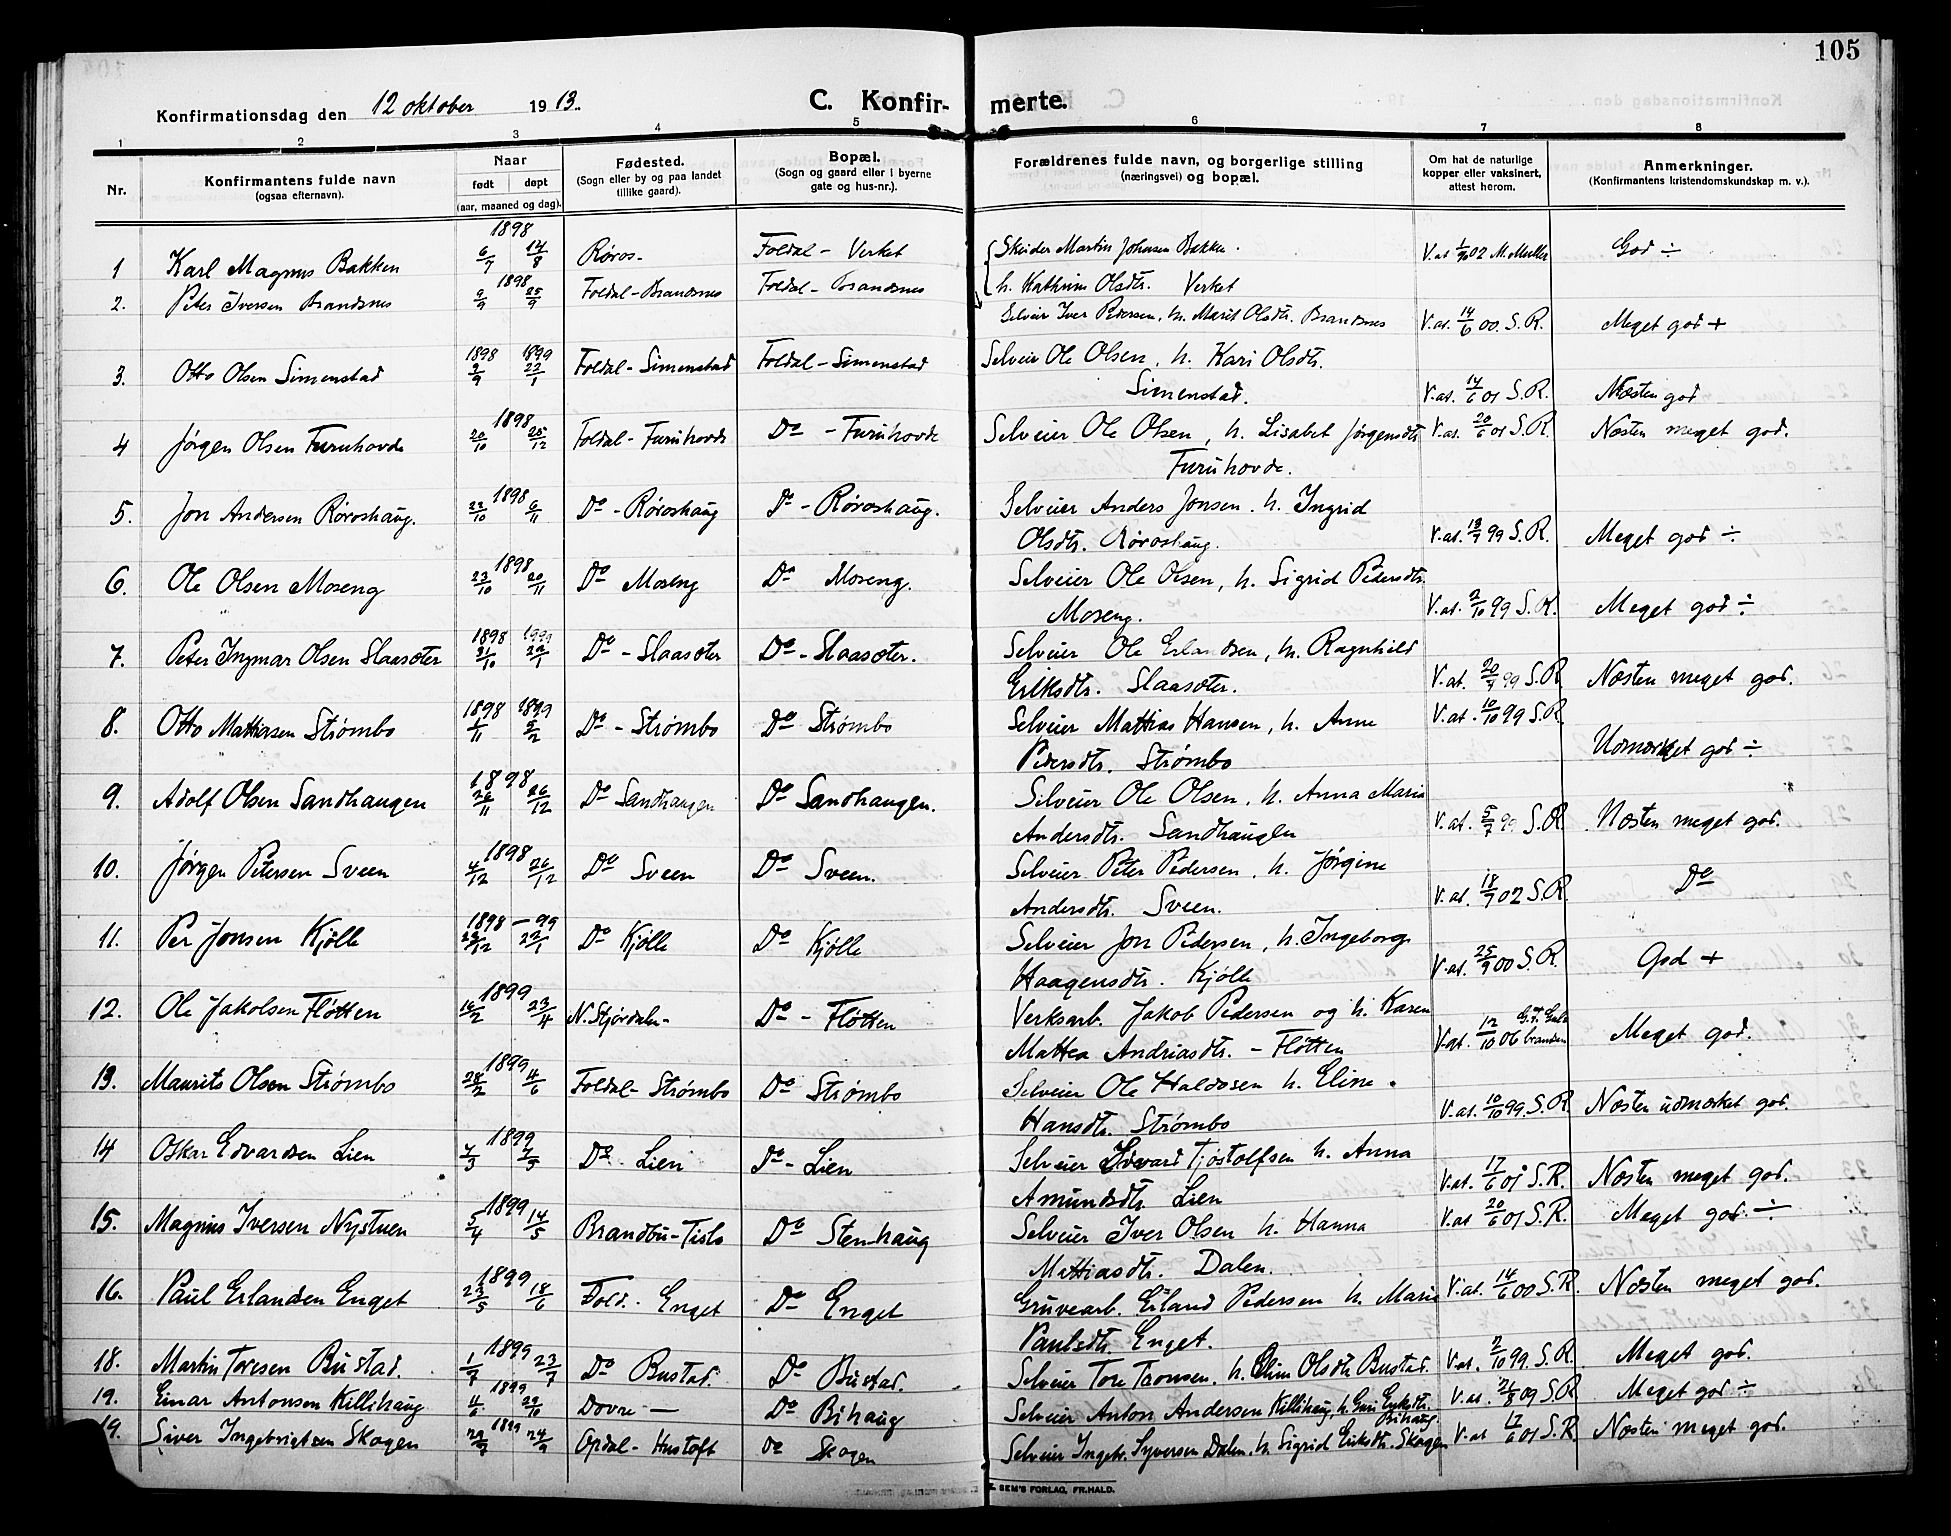 105
Konfirmationsdag den 12 oktober 1913.
C. Konfirmerte.
1 2 3 4 5 6 7 8
Nr. Konfirmantens fulde navn (ogsaa efternavn). Naar født døpt (aar, maaned og dag). Fødested. (Sogn eller by og paa landet tillike gaard). Bopæl. (Sogn og gaard eller i byerne gate og hus-nr.). Forældrenes fulde navn, og borgerlige stilling (næringsvei) og bopæl. Om hat de naturlige kopper eller vaksinert, attest herom. Anmerkninger. (Konfirmantens kristendomskundskap m. v.).
1 Karl Magnus Bakken 1898 6/7 14/8 Røros- Foldal - Verket Skeider Martin Johnsen Bakken. V. at 02 M. Muller God ÷
h. Kathrine Olsdtr. Verket
2. Peter Iversen Brandsnes 1898 9/9 25/9 Foldal - Brandsnes Foldal - Brandsnes Selveier Iver Pedersen, h. Marit Olsdtr. Brandsnes V. at. 14/6 00. S. R. Meget god +
3. Otto Olsen Simenstad 1898 9/9 1899 22/1 Foldal - Simenstad Foldal - Simenstad Selveier Ole Olsen, h. Kari Olsdtr.
Simenstad. V. at. 14/6 01 S. R. Næsten god
4 Jørgen Olsen Furuhovde 1898 20/10 25/12 Foldal - Furuhovde Do - Furuhovde Selveier Ole Olsen, h. Lisabet Jørgensdtr V. at. 20/6 01 S. R. Næsten meget god.
Furuhovde.
5. Jon Andersen Røroshaug. 1898 22/10 6/11 Do - Røroshaug Do - Røroshaug. Selveier Anders Jonsen. h. Ingrid
Olsdtr. Røroshaug. V. at. 18/7 99 S. R. Meget god ÷
6. Ole Olsen Moseng 1898 23/10 20/11 Do Moseng Do Moseng. Selveier Ole Olsen, h. Sigrid Pedersdtr.
Moseng. V. at. 2/10 99 S. R. Meget god ÷
7. Peter Ingmar Olsen Slaasæter 1898 31/10 1999 29/1 Do - Slaasæter Do - Slaasæter. Selveier Ole Erlandsen, h. Ragnhild
Eriksdtr. Slaasæter. V. at. 20/7 99 S. R. Næsten meget god.
8. Otto Mathiasen Strømbo 1898 1/11 1899 5/2 Do - Strømbo Do Strømbo Selveier Mattias Hansen, h. Anne V. at. 10/10 99 S. R.
Pedersdtr. Strømbo Udmerket god ÷
9. Adolf Olsen Sandhaugen 1898 26/11 26/12 Do Sandhaugen Do Sandhaugen. Selveier Ole Olsen, h. Anna Maria
Andersdtr. Sandhaugen V. at. 5/7 99 S. R. Næsten meget god.
10. Jørgen Petersen Sveen 1898 4/12 26/12 Do Sveen Do Sveen. Selveier Peter Pedersen, h. Jørgine
Andersdtr. Sveen. V. at. 18/7 02 S. R. Do
11. Per Jonsen Kjølle 1898 - 99 29/1 Do Kjølle Do Kjølle Selveier Jon Pedersen, h. Ingeborg
Haagensdtr. Kjølle V. at. 25/9 00 S. R. God +
12. Ole Jakobsen Fløtten 1899 16/2 23/4 N. Stjørdalen- Do - Fløtten Verksarb. Jakob Pedersen og h. Karen
Mattea Andriasdtr. - Fløtten V. at. 12/10 06 Meget god.
13. Maurits Olsen Strømbo 1899 28/2 4/6 Foldal - Strømbo Do Strømbo Selveier Ole Haldosen h. Eline
Hansdtr. Strømbo V. at. 10/10 99. S. R. Næsten udmærket god.
14 Oskar Edvardsen Lien 1899 7/3 7/5 Do - Lien Do - Lien Selveier Edvard Tjøstolfsen h. Anna
Amundsdtr. Lien V. at. 17/6 01 S. R. Næsten meget god.
15. Magnus Iversen Nystuen 1899 5/4 14/5 Brandbu - Tislo Do Stenhaug Selveier Iver Olsen h. Hanna V. at 20/6 01 S. R. Meget god. ÷
Mattiasdtr. Dalen.
16. Paul Erlandsen Enget 1899 23/5 18/6 Fold. - Enget Do Enget Gruvearb. Erland Pedersen h. Marie V. at. 14/6 00 S. R. Næsten meget god.
Paulsdtr. Enget.
18. Martin Toresen Bustad. 1899 1/7 23/7 Do Bustad. Do Bustad. Selveier Tore Tronsen. h. Eline Olsdtr. Bustad. V. at. 2/10 99. S. R. Meget god.
19. Einar Antonsen Killihaug 1899 11/6 22/10 Dovre - Do Bihaug Selveier Anton Andersen Killihaug, h. Guri Eriksdtr. V. at. 09 S. R. Meget god ÷
Bihaug
19. Siver Ingebrigtsen Skogen 1899 24/9 Opdal - Hustoft Do Skogen Selveier Ingebr. Syversen Dalen, h. Sigrid Eriksdtr. Skogen V. at 17/6 01 S. R. Næsten meget god.
SEM'S FORLAG, FR.HALD.